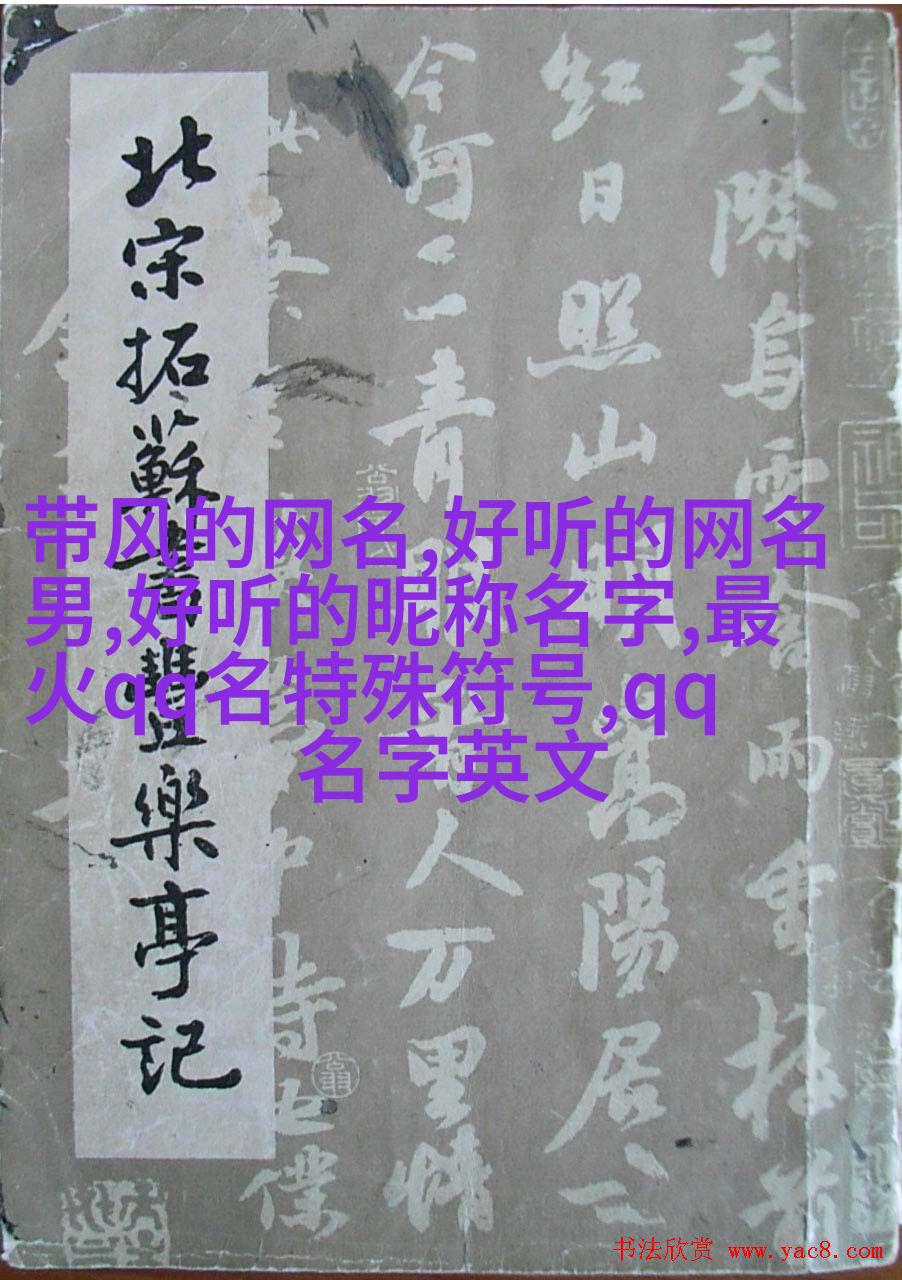 北宋拓蘇書豐樂亭記
天際烏雲含雨重樓前
紅日照山明嵩陽居士
今何在青眼看人万里情
中詩也僕
带风的网名,好听的网名
男,好听的昵称名字,最
火qq名特殊符号,qq
名字英文
书法欣赏 www.yac8.com